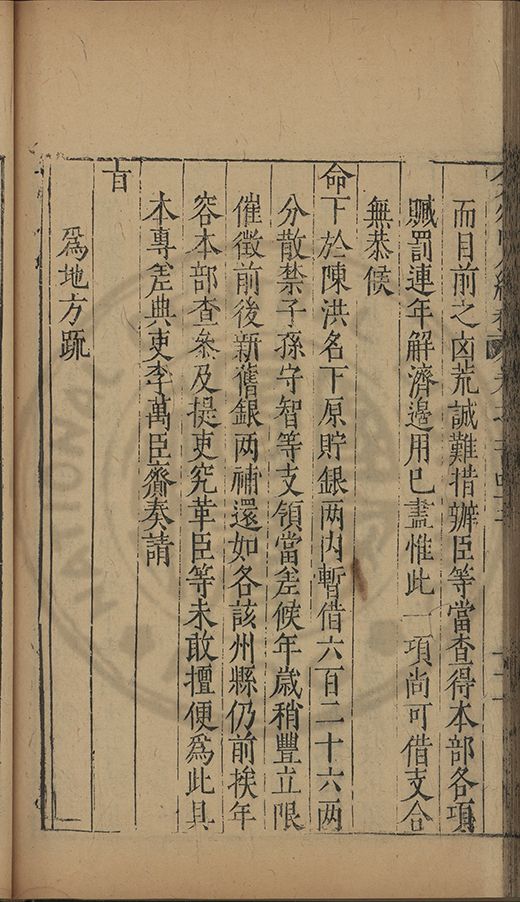 而目前之凶荒誠難措辦臣等當查得本部各項
贓罰連年解濟邊用已盡惟此一項尚可借支合
無恭候
命下於陳洪名下原貯銀两内暫借六百二十六两
分散禁子孫守智等支領當差候年歲稍豐立限
催徵前後新舊銀两補還如各該州縣仍前挨年
容本部查叅及提吏究革臣等未敢擅便爲此具
本專差典吏李萬臣賫奏請
旨
爲地方䟽